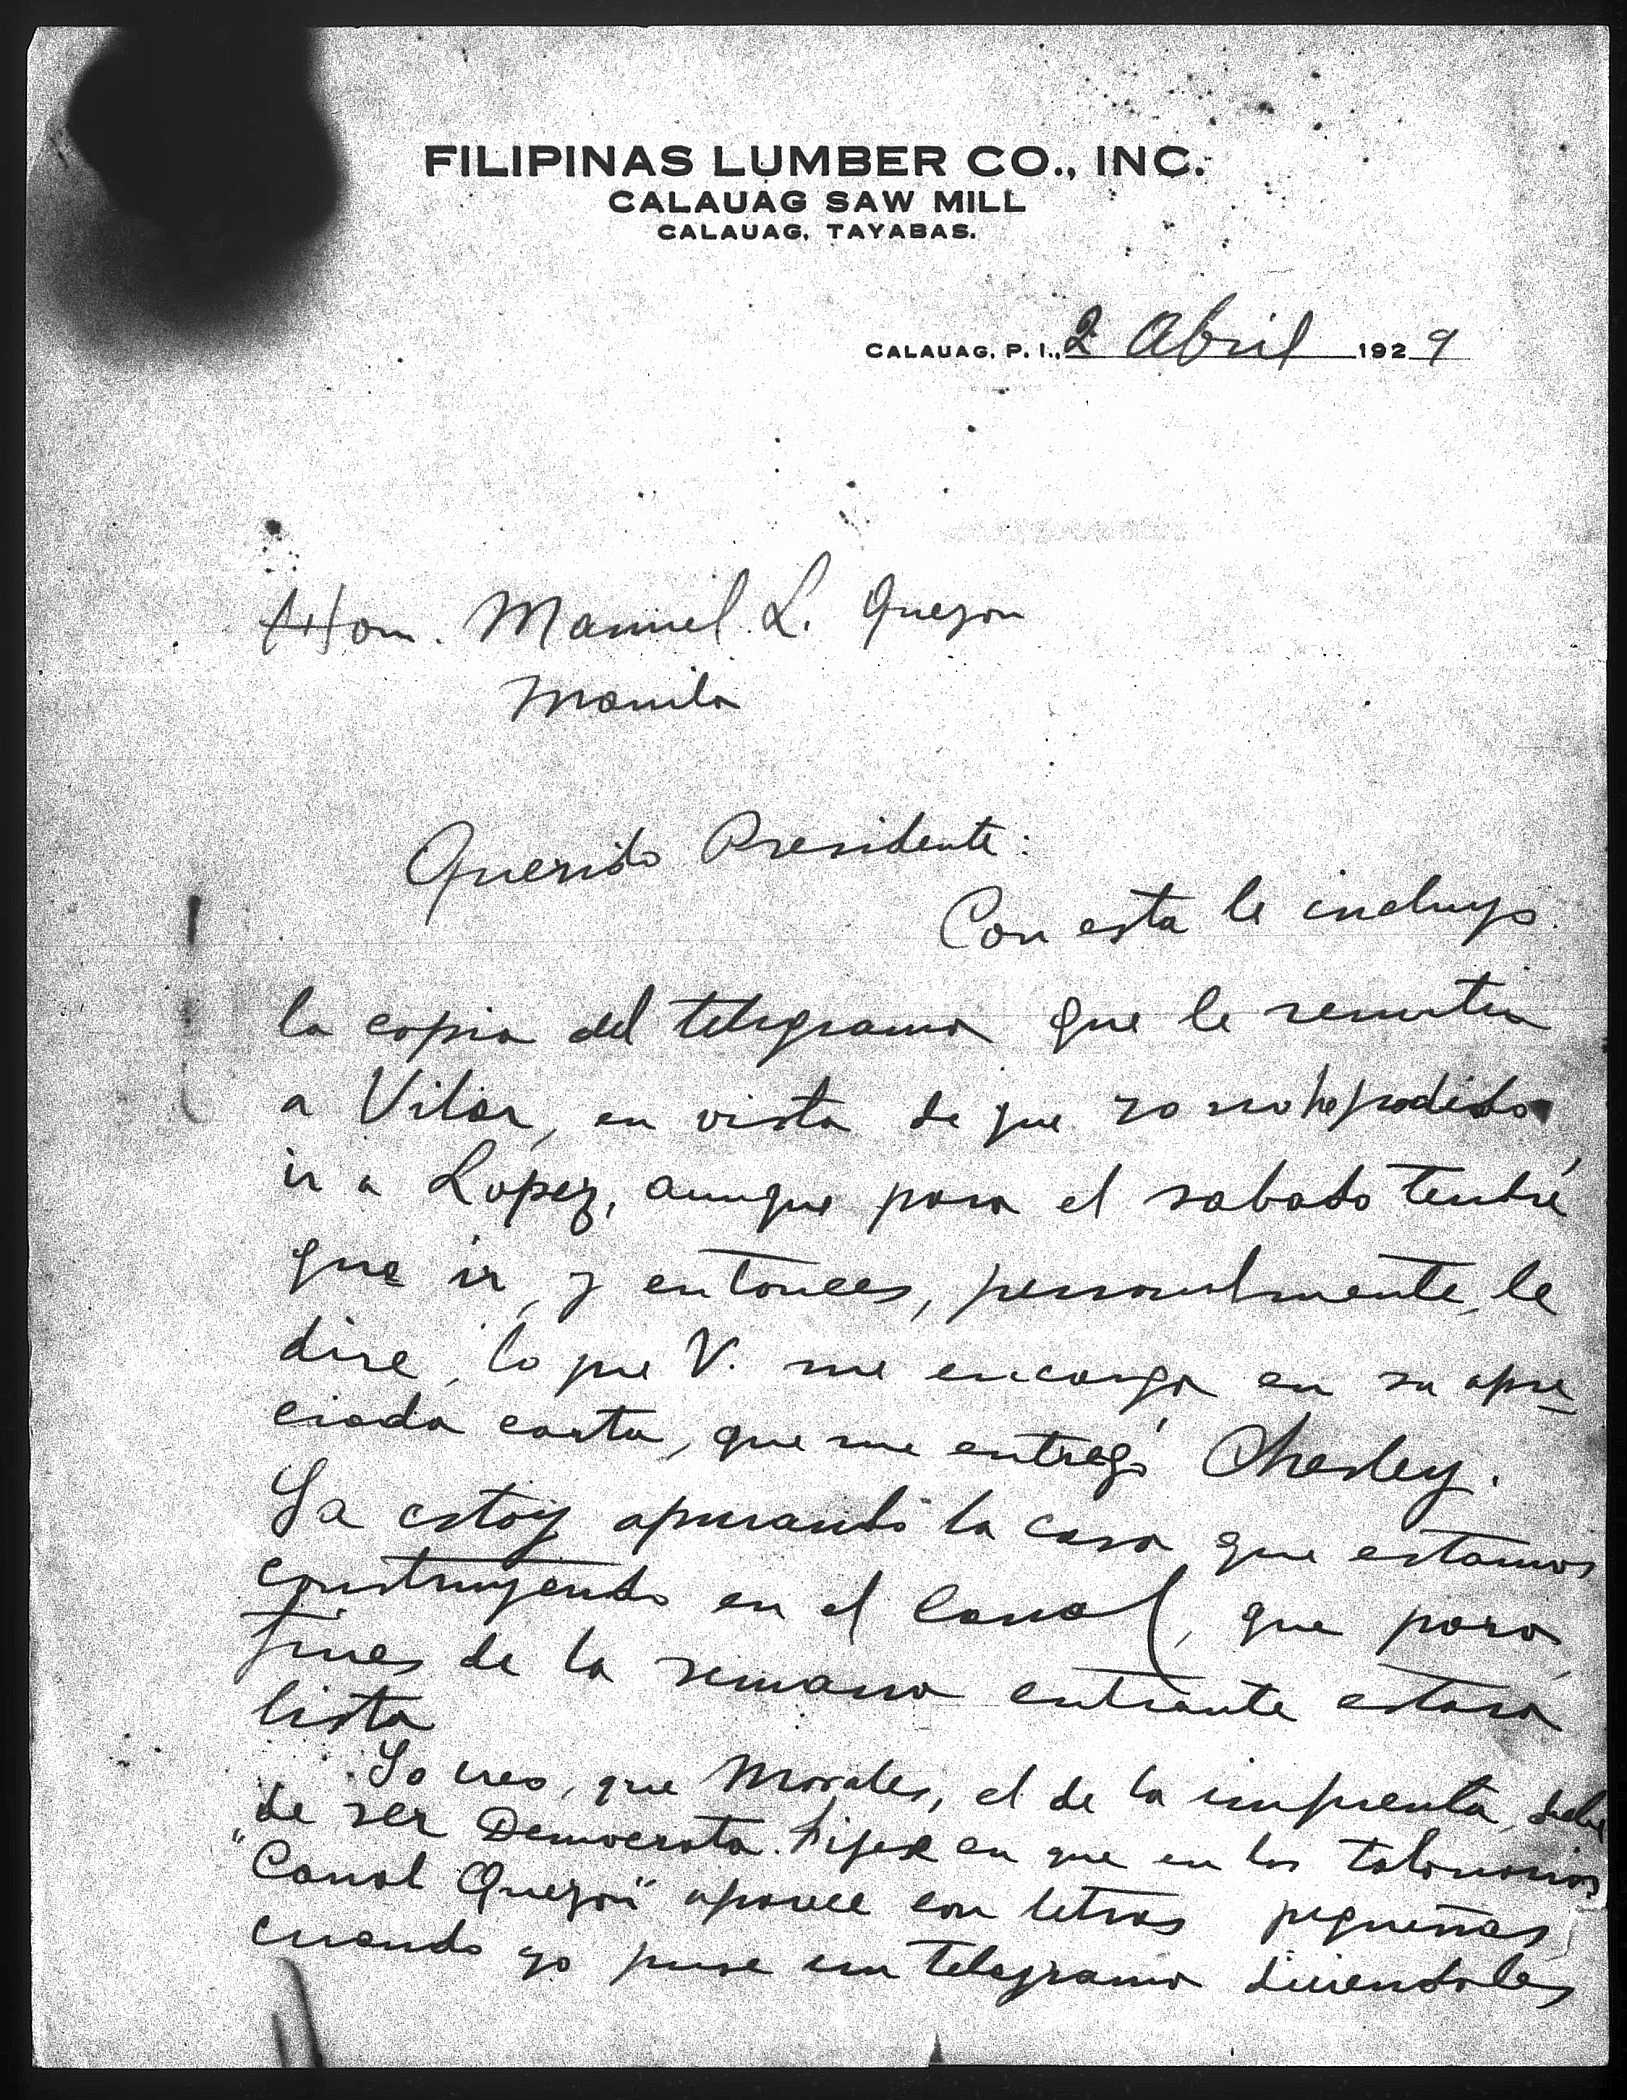 FILIPINAS LUMBER CO., INC.
CALAUAG SAW MILL
CALAUAG, TAYABAS.
CALAUAG, P. I., 2 Abril 1929
Hon. Manuel L. Quezon
Manila
Querido Presidente:
Con esta le incluyo
la copia del telegrama que le remitia
a Vilar, en vista de que yo no he podido
ir a Lopez, aunque para el sabado tendré
que ir, y entonces, personalmente, le
dire, lo que V. me encarga en su apre
ciada carta, que me entregó Chesley.
Ya estoy apurando la casa que estamos
construyendo en el Canal, que para
fines de la semana entrante estará
lista
Yo creo, que Morales, el de la imprenta, debe
de ser Democrata. Fijese en que en los talonarios
"Canal Quezon" aparece con letras pequeñas,
cuando yo puse un telegrama diciendoles